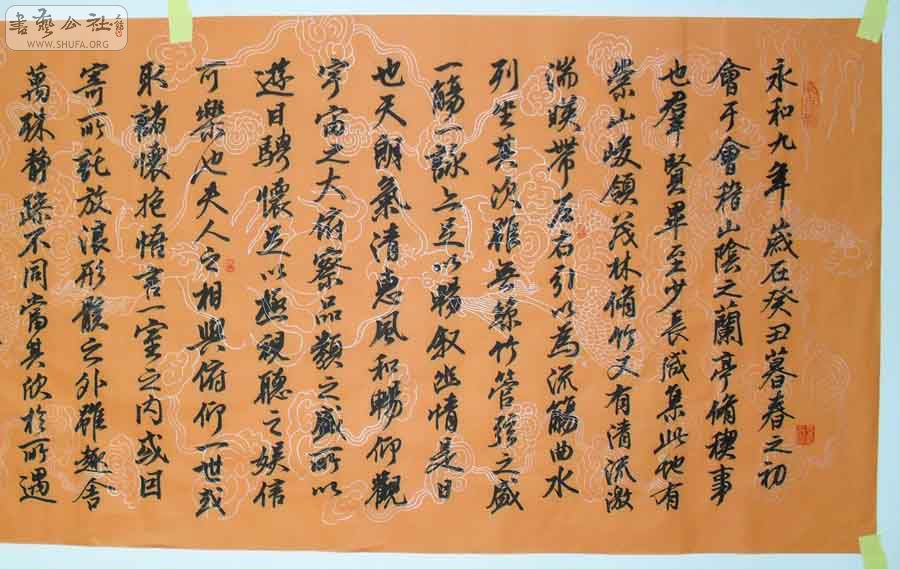 永和九年歲在癸丑暮春之初
會于會稽山陰之蘭亭脩稧事
也羣賢畢至少長咸集此地有
崇山峻領茂林脩竹又有清流激
湍暎帶左右引以為流觴曲水
列坐其次雖無絲竹管弦之盛
一觴一詠亦足以暢叙幽情是日
也天朗氣清惠風和暢仰觀
宇宙之大俯察品類之盛所以
遊目騁懷足以極視聽之娛信
可樂也夫人之相與俯仰一世或
取諸懷抱悟言一室之內或因
寄所託放浪形骸之外雖趣舍
萬殊靜躁不同當其欣於所遇
書藝公社
WWW.SHUFA.ORG